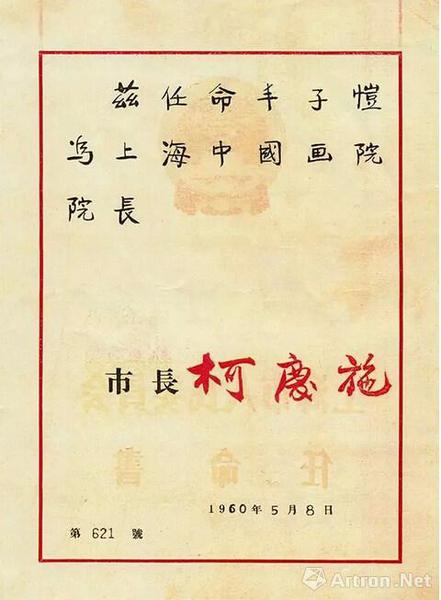 兹任命丰子愷
為上海中國画院
院長
市長 柯慶施
1960年5月8日
第 621 號
Artron.Net